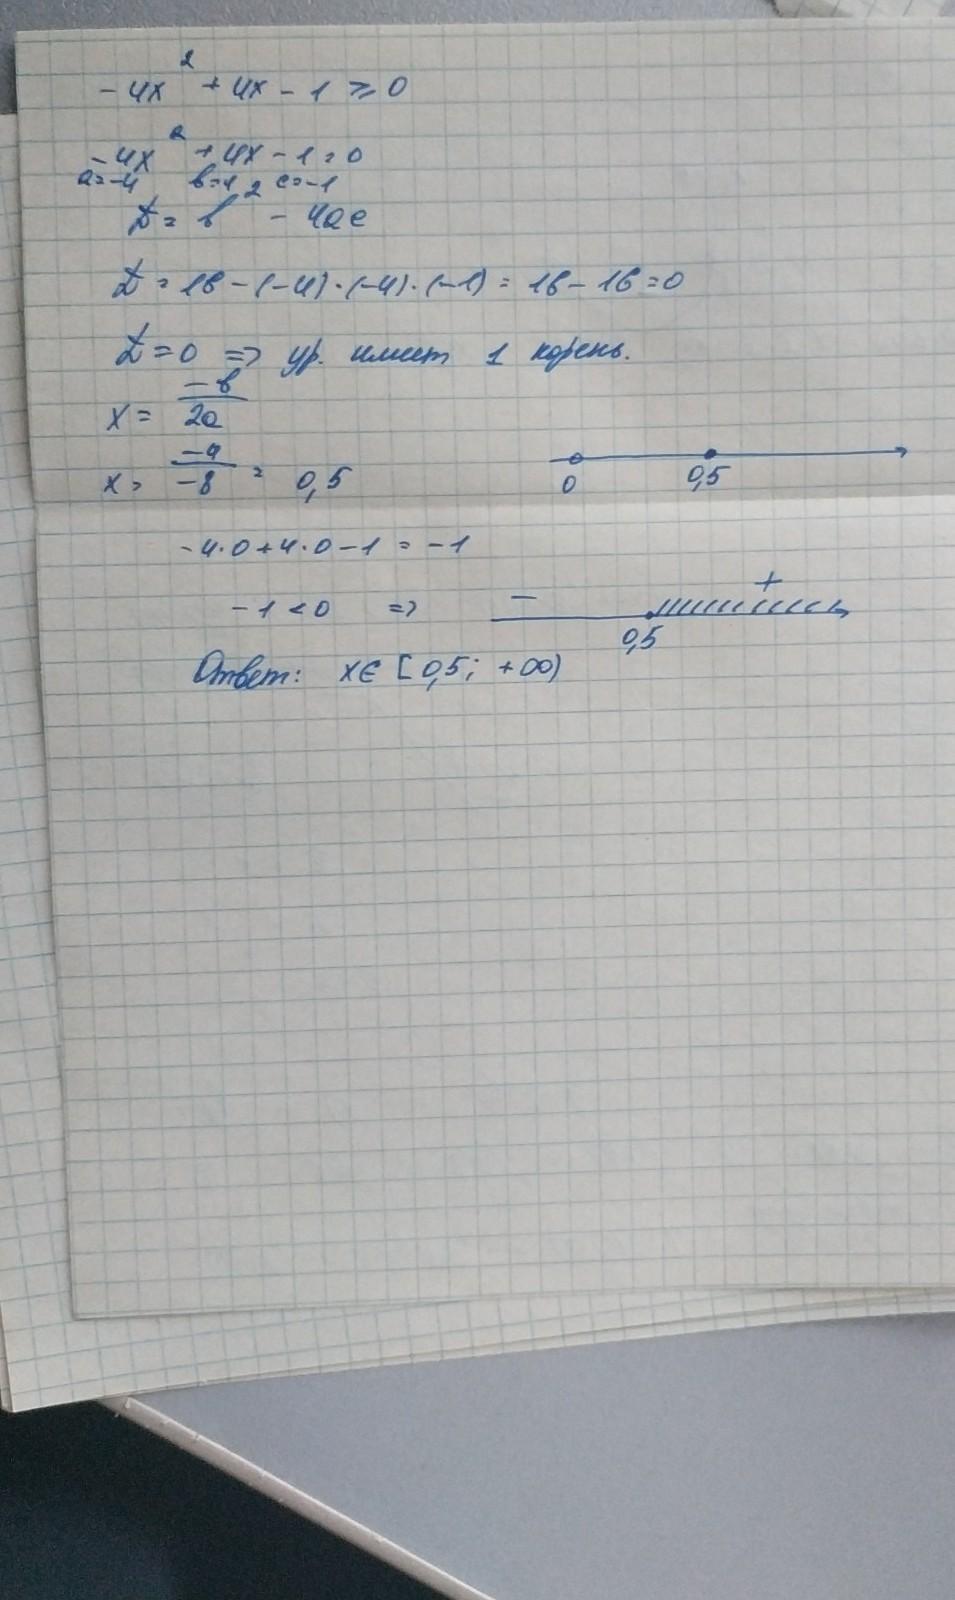 -4x² + 4x - 1 ≥ 0
-4x² + 4x - 1 = 0
a=-4 b=4 c=-1
D = b² - 4ac
D = 16 - (-4)·(-4)·(-1) = 16 - 16 = 0
D = 0 => ур. имеет 1 корень.
x = -b/2a
x = -4/-8 = 0,5
0 0,5
-4·0+4·0-1 = -1
-1 < 0 => - +
0,5
Ответ: x∈[0,5; +∞)